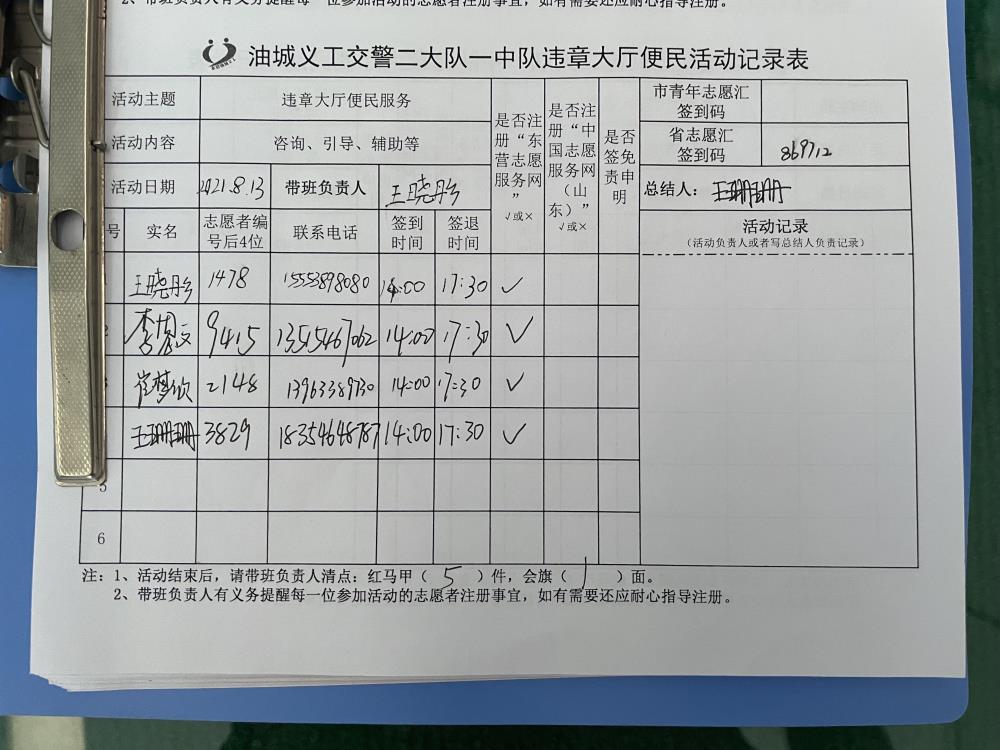 2、带班负责人有义务提醒每一位参加活动的志愿者注册事宜，如有需要还应耐心指导注册。
油城义工交警二大队一中队违章大厅便民活动记录表
活动主题 违章大厅便民服务
是否注册“东营志愿服务网” √或×
是否注册“中国志愿服务网（山东）” √或×
是否签免责申明
市青年志愿汇签到码
活动内容 咨询、引导、辅助等
省志愿汇签到码 869712
活动日期 2021.8.13 带班负责人 王晓彤
总结人： 王珊珊
号 实名 志愿者编号后4位 联系电话 签到时间 签退时间
活动记录
（活动负责人或者写总结人负责记录）
王晓彤 1478 15553898080 14:00 17:30 ✓
2 9415 13515467062 14:00 17:30 ✓
3 崔梦欣 2148 13963389730 14:00 17:30 ✓
王珊珊 3829 18354648787 14:00 17:30 ✓
5
6
注：1、活动结束后，请带班负责人清点：红马甲（ 5 ）件，会旗（ 1 ）面。
2、带班负责人有义务提醒每一位参加活动的志愿者注册事宜，如有需要还应耐心指导注册。